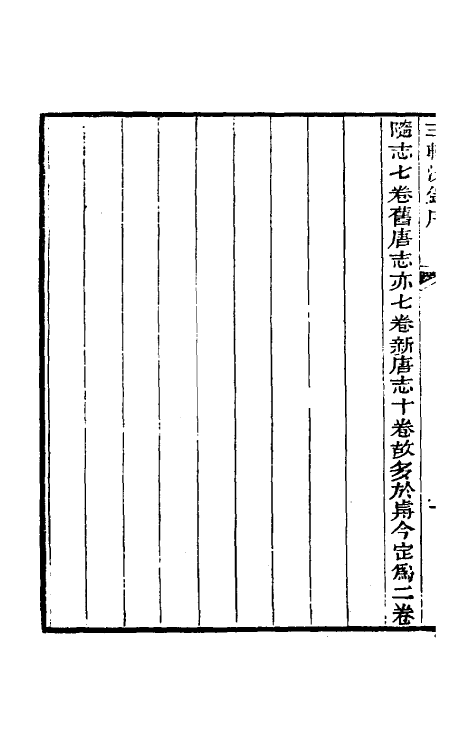 隨志七卷舊唐志亦七卷新唐志十卷故多於前今定爲二卷